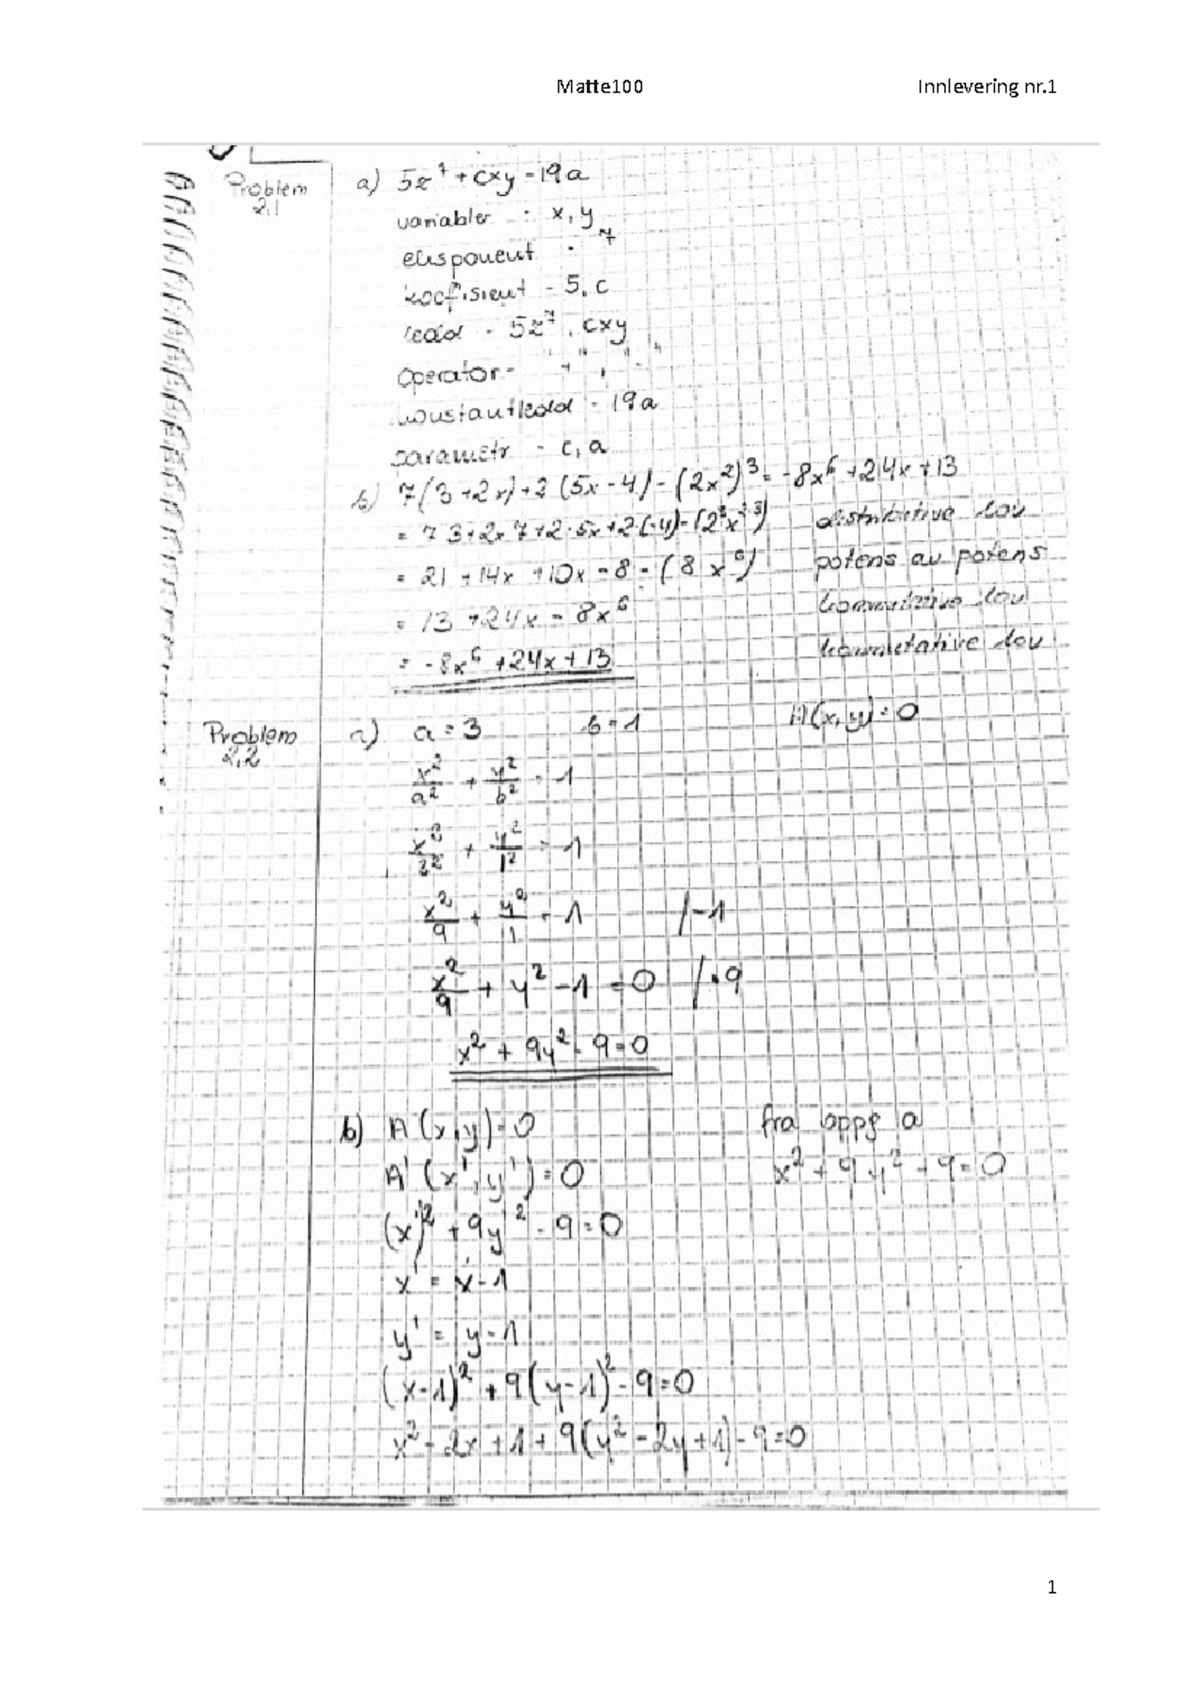 Matte100 Innlevering nr.1
Problem 2.1 a) 5z⁷ + cxy - 19a
variabler : x, y
eksponent : 7
koefisient - 5, c
ledd - 5z⁷, cxy
operator - "+", "-"
konstantledd - 19a
parametr - c, a
b) 7(3+2x)+2(5x-4)-(2x²)³ = -8x⁶+24x+13
= 7·3+2x·7+2·5x+2·(-4)-(2³x²·³) distributive lov
= 21+14x+10x-8-(8x⁶) potens av potens
= 13+24x-8x⁶ kommutative lov
= -8x⁶+24x+13 kommutative lov
Problem 2.2 a) a=3 b=1 A(x,y)=0
x²/a² + y²/b² = 1
x²/3² + y²/1² = 1
x²/9 + y²/1 = 1 /-1
x²/9 + y² - 1 = 0 /·9
x² + 9y² - 9 = 0
b) A(x,y)=0 fra oppg a
A'(x',y')=0 x²+9y²-9=0
(x')²+9y'²-9=0
x' = x-1
y' = y-1
(x-1)²+9(y-1)²-9=0
x²-2x+1+9(y²-2y+1)-9=0
1